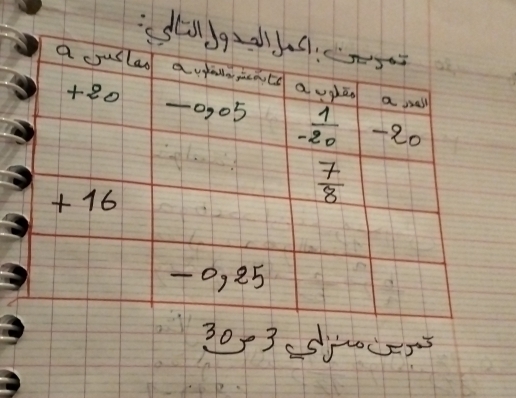 تمرين: أكمل الجدول التالي:
العدد a مقلوب a كتابة عشرية لمقلوب a معاكس a
-20 1/-20 -0,05 +20
7/8
+16
-0,25
تمرين منزلي 3 ص 30